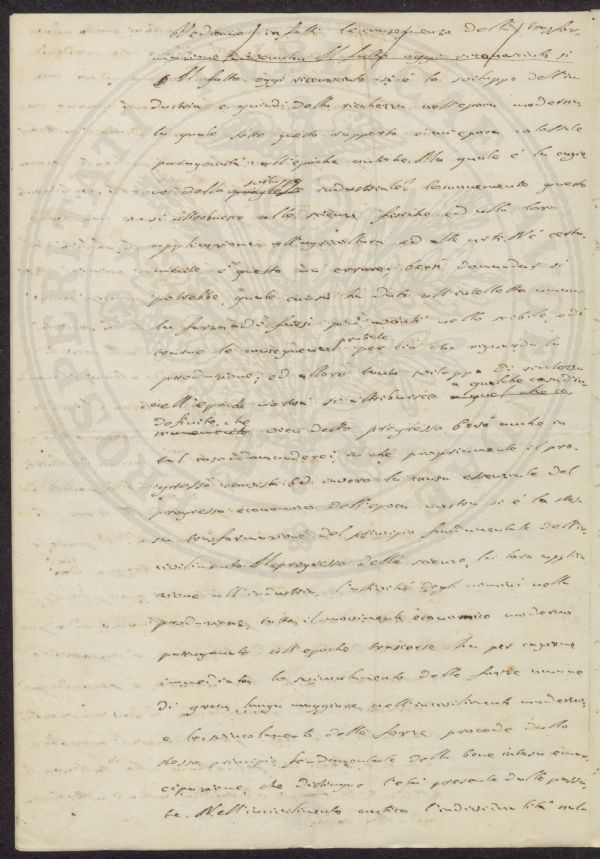 Vediamo infatti le conseguenze della trasfor-
mazione Il fatto oggi riconosciuto si
Il fatto oggi riconosciuto si è lo sviluppo dell'in-
dustria e quindi della ricchezza nell'epoca moderna,
la quale sotto questo rapporto è un'epoca colossale
paragonata all'epoche antiche. Ma quale è la cagio-
ne dello sviluppo progresso industriale? Comunemente questo
si attribuisce alle scienze fisiche ed alla loro
applicazione all'agricoltura ed alle arti. Nè certa-
mente è questo un errore; bensì domandar si
potrebbe quale causa ha dato all'intelletto umano
la forza di farsi più avanti nello scibile, e di
trarne le conseguenze pratiche per ciò che riguarda la
produzione; ed allora tanto sviluppo di ricchezza
nell'epoca nostra si attribuisce a qualche cosa d'in-
definito, che
vien detto progresso. Però anche in
tal caso domanderei, in che propriamente il pro-
gresso consista. Ed invero la causa essenziale del
progresso economico dell'epoca nostra si è la stes-
sa trasformazione del principio fondamentale dell'in-
civilimento. Il progresso delle scienze, la loro applica-
zione all'industria, l'attività degli uomini nella
produzione, tutto il movimento economico moderno
paragonato coll'epoche trascorse ha per cagione
immediata lo svincolamento delle forze umane
di gran lunga maggiore nell'incivilimento moderno;
e lo svincolamento delle forze procede dallo
stesso principio fondamentale della bene intesa eman-
cipazione, che distingue l'età presente dalle passa-
te. Nell'incivilimento antico l'individualità nulla